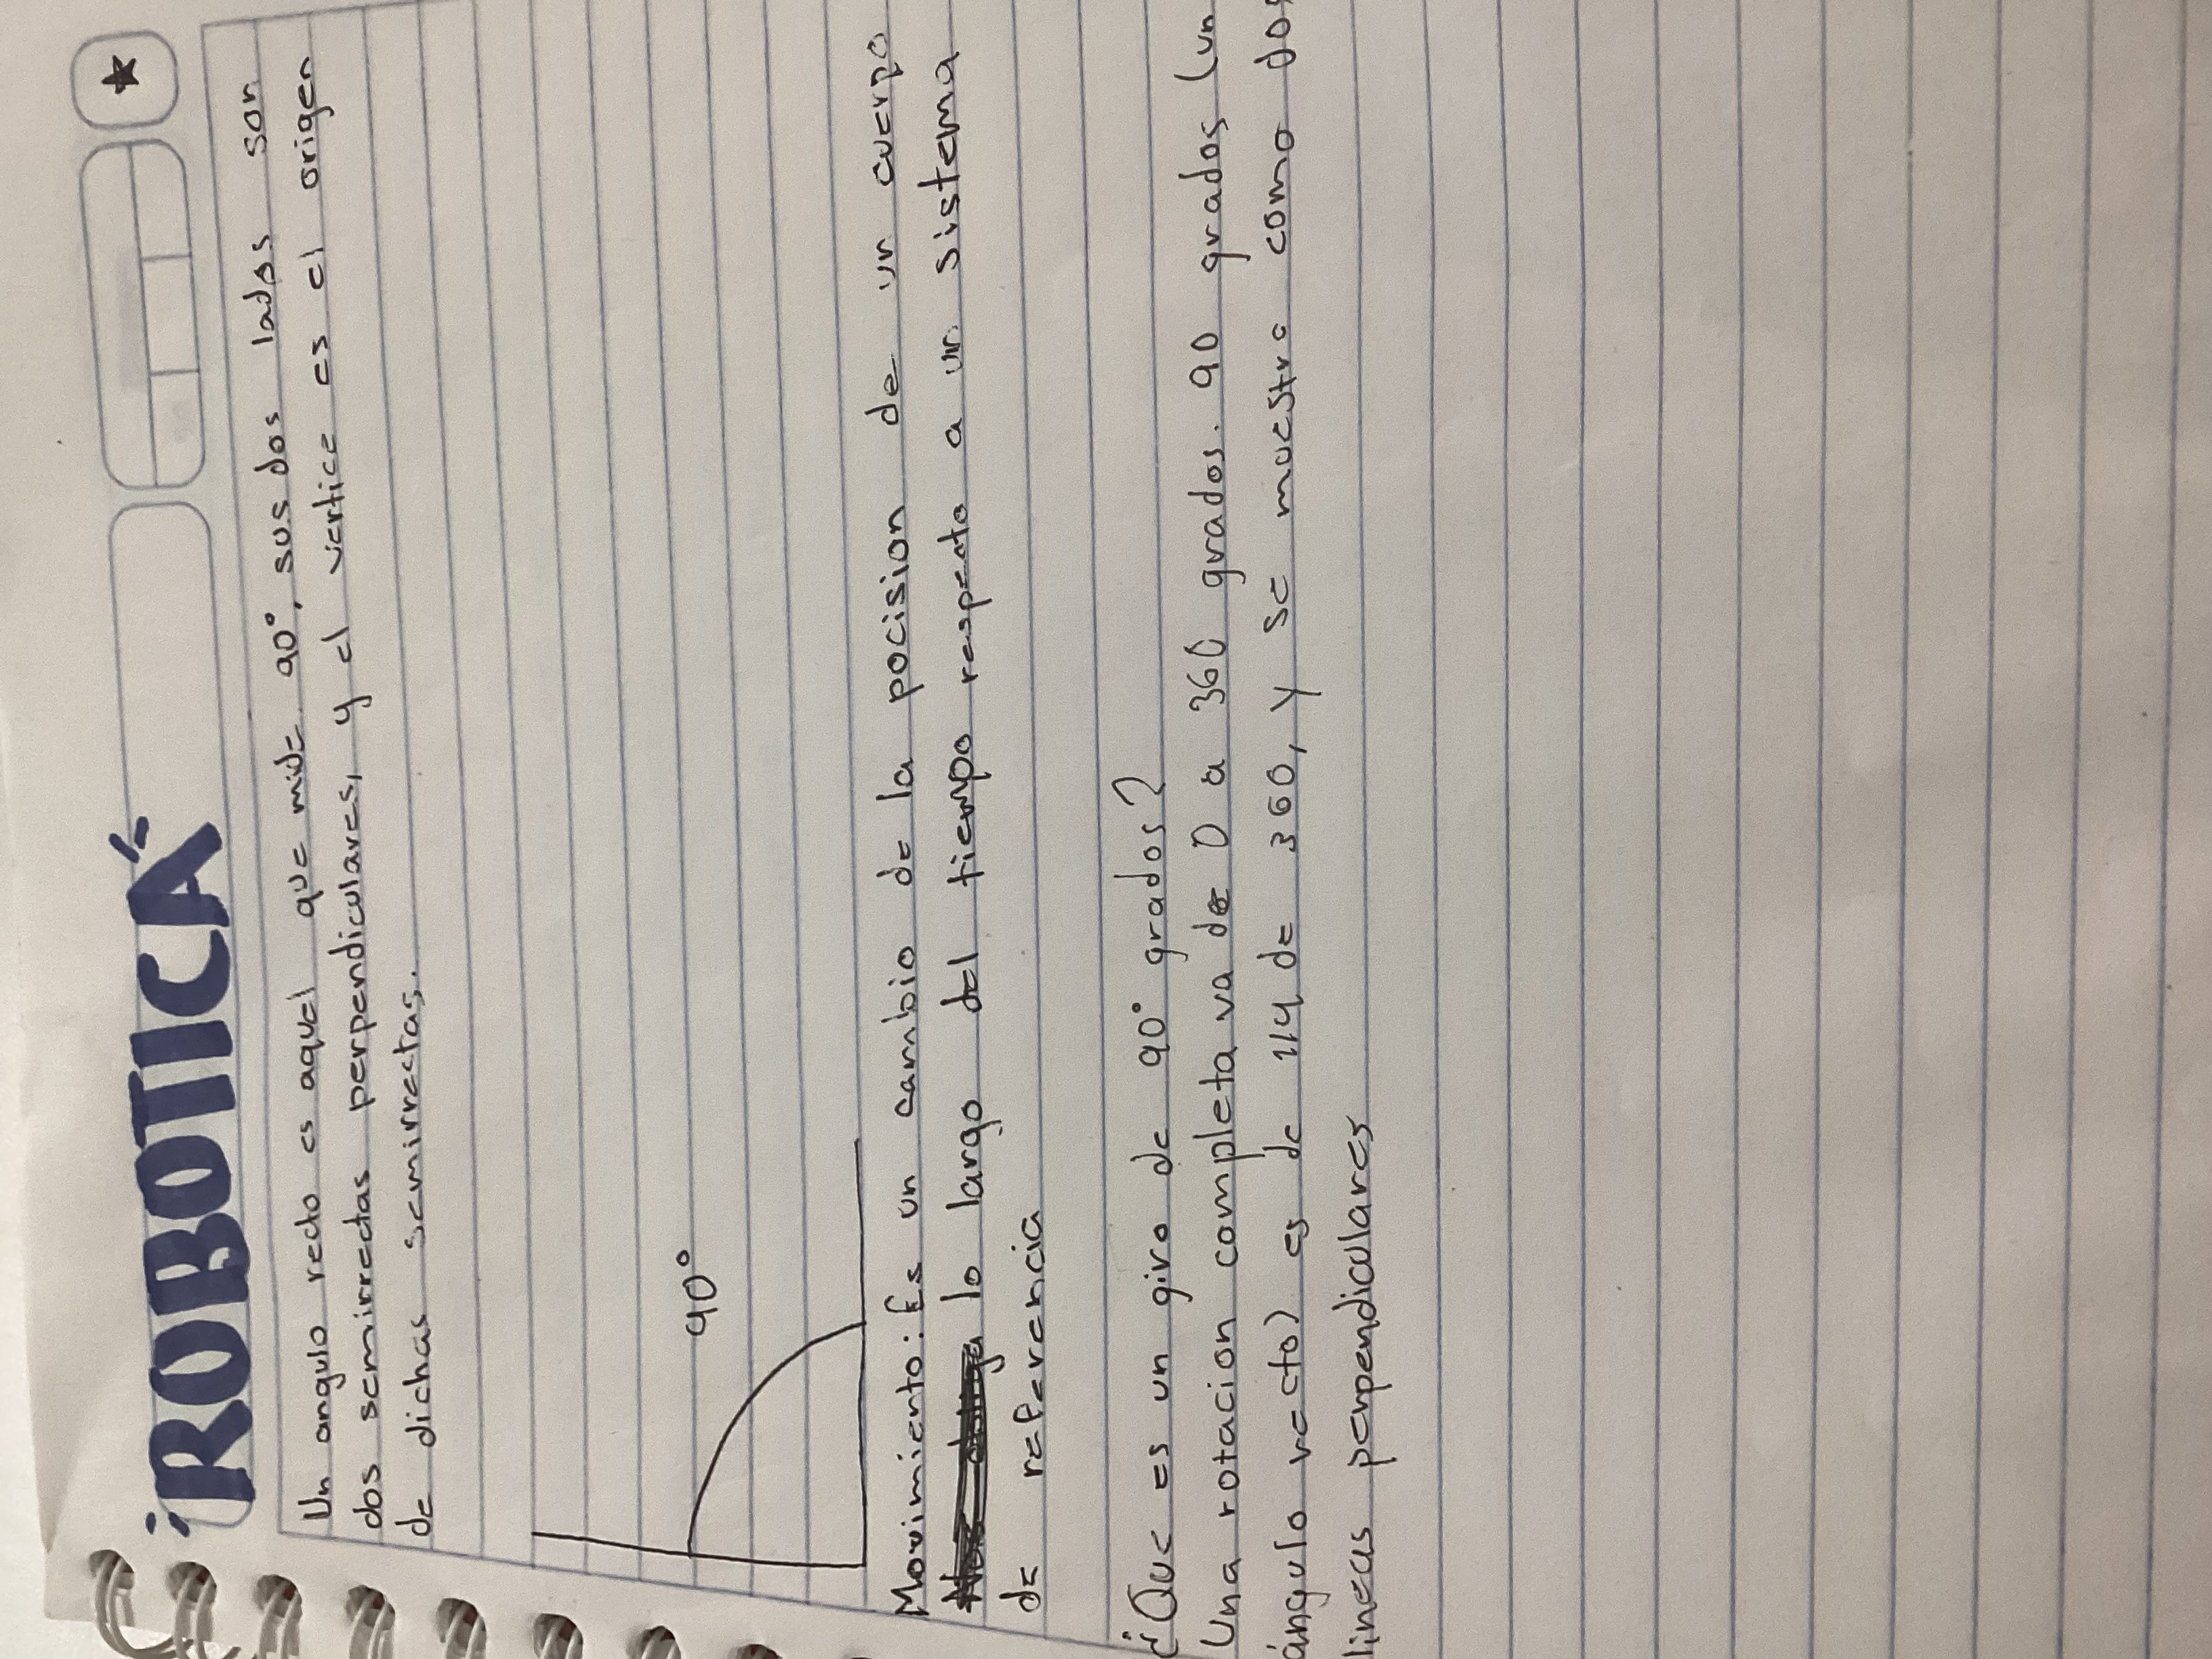 ROBOTICA
Un angulo recto es aquel que mide 90°, sus dos lados son
dos semirrectas perpendiculares, y el vertice es el origen
de dichas semirrectas.
90°
Movimiento: Es un cambio de la pocision de un cuerpo
lo largo del tiempo respecto a un sistema
de referencia
¿Que es un giro de 90° grados?
Una rotacion completa va de 0 a 360 grados. 90 grados (un
ángulo recto) es de 1/4 de 360, y se muestra como dos
lineas perpendiculares